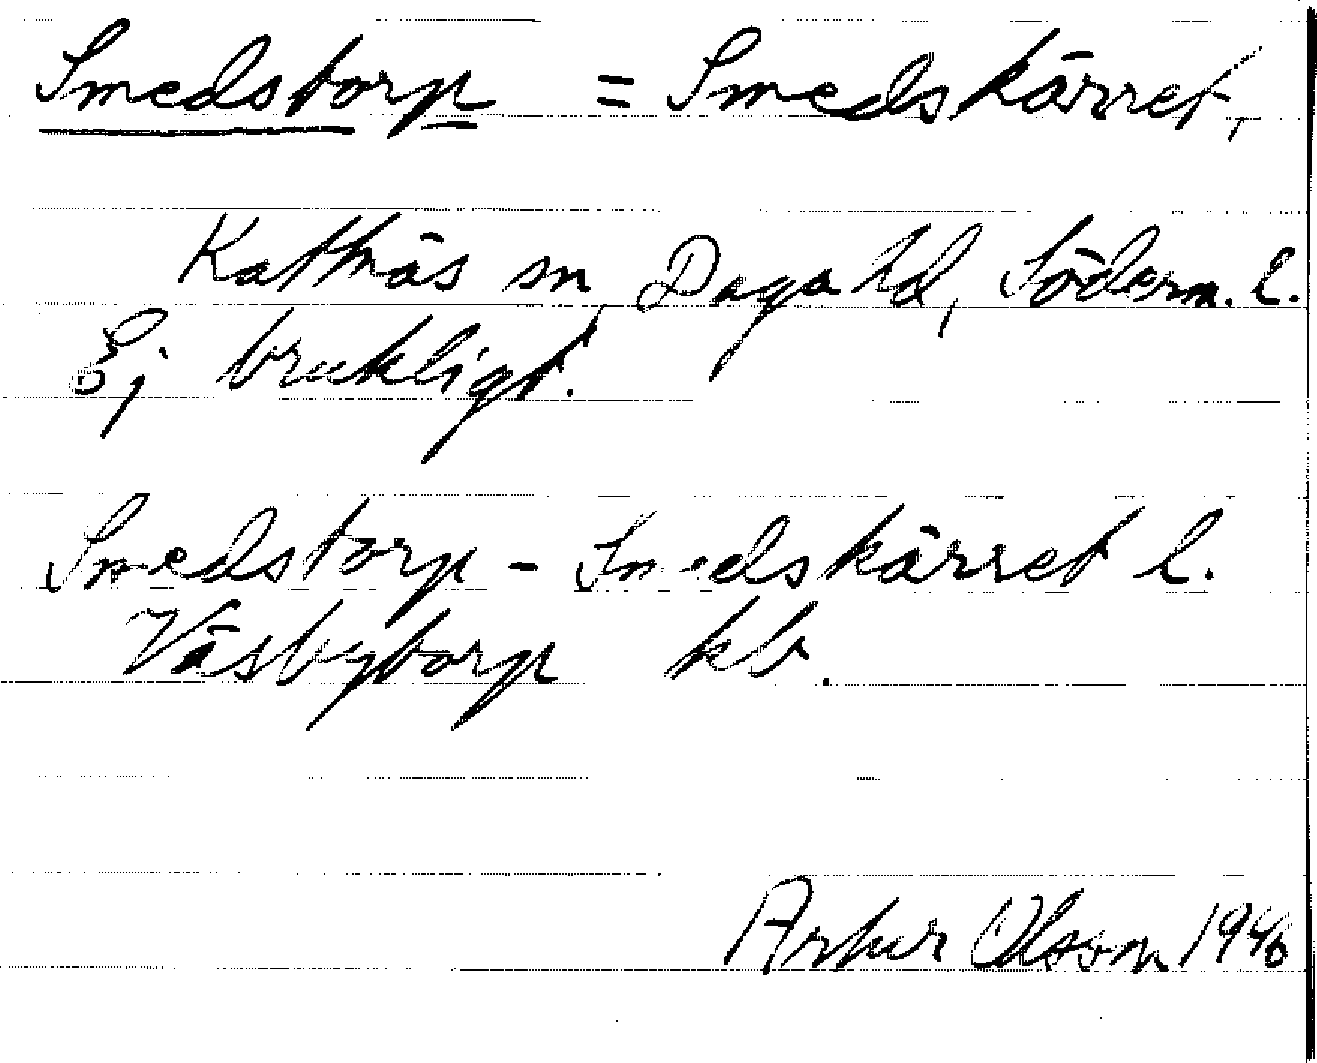 Smedstorp = Smedskärret,
Kattnäs sn Daga hd, Söderm. l.
Ej brukligt.
Smedstorp - Smedskärret l.
Väsbytorp kb.
Artur Olsson 1946